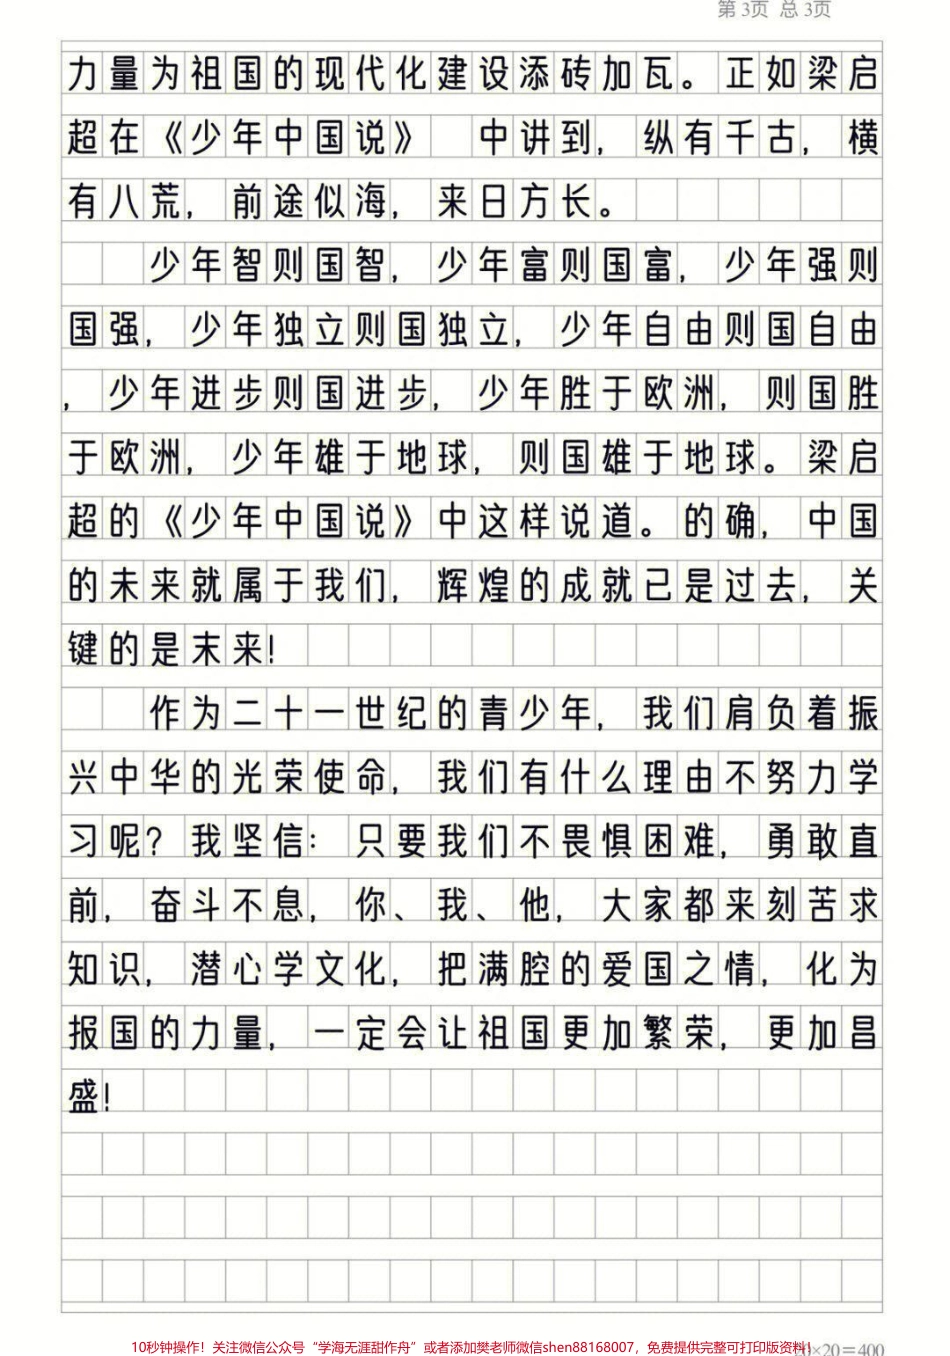 第 3页 总 3页
力量为祖国的现代化建设添砖加瓦。正如梁启
超在《少年中国说》 中讲到，纵有千古，横
有八荒，前途似海，来日方长。
少年智则国智，少年富则国富，少年强则
国强，少年独立则国独立，少年自由则国自由
，少年进步则国进步，少年胜于欧洲，则国胜
于欧洲，少年雄于地球，则国雄于地球。梁启
超的《少年中国说》中这样说道。的确，中国
的未来就属于我们，辉煌的成就已是过去，关
键的是末来！
作为二十一世纪的青少年，我们肩负着振
兴中华的光荣使命，我们有什么理由不努力学
习呢？我坚信：只要我们不畏惧困难，勇敢直
前，奋斗不息，你、我、他，大家都来刻苦求
知识，潜心学文化，把满腔的爱国之情，化为
报国的力量，一定会让祖国更加繁荣，更加昌
盛！
10秒钟操作！关注微信公众号“学海无涯甜作舟”或者添加樊老师微信shen88168007，免费提供完整可打印版资料！
20×20＝400